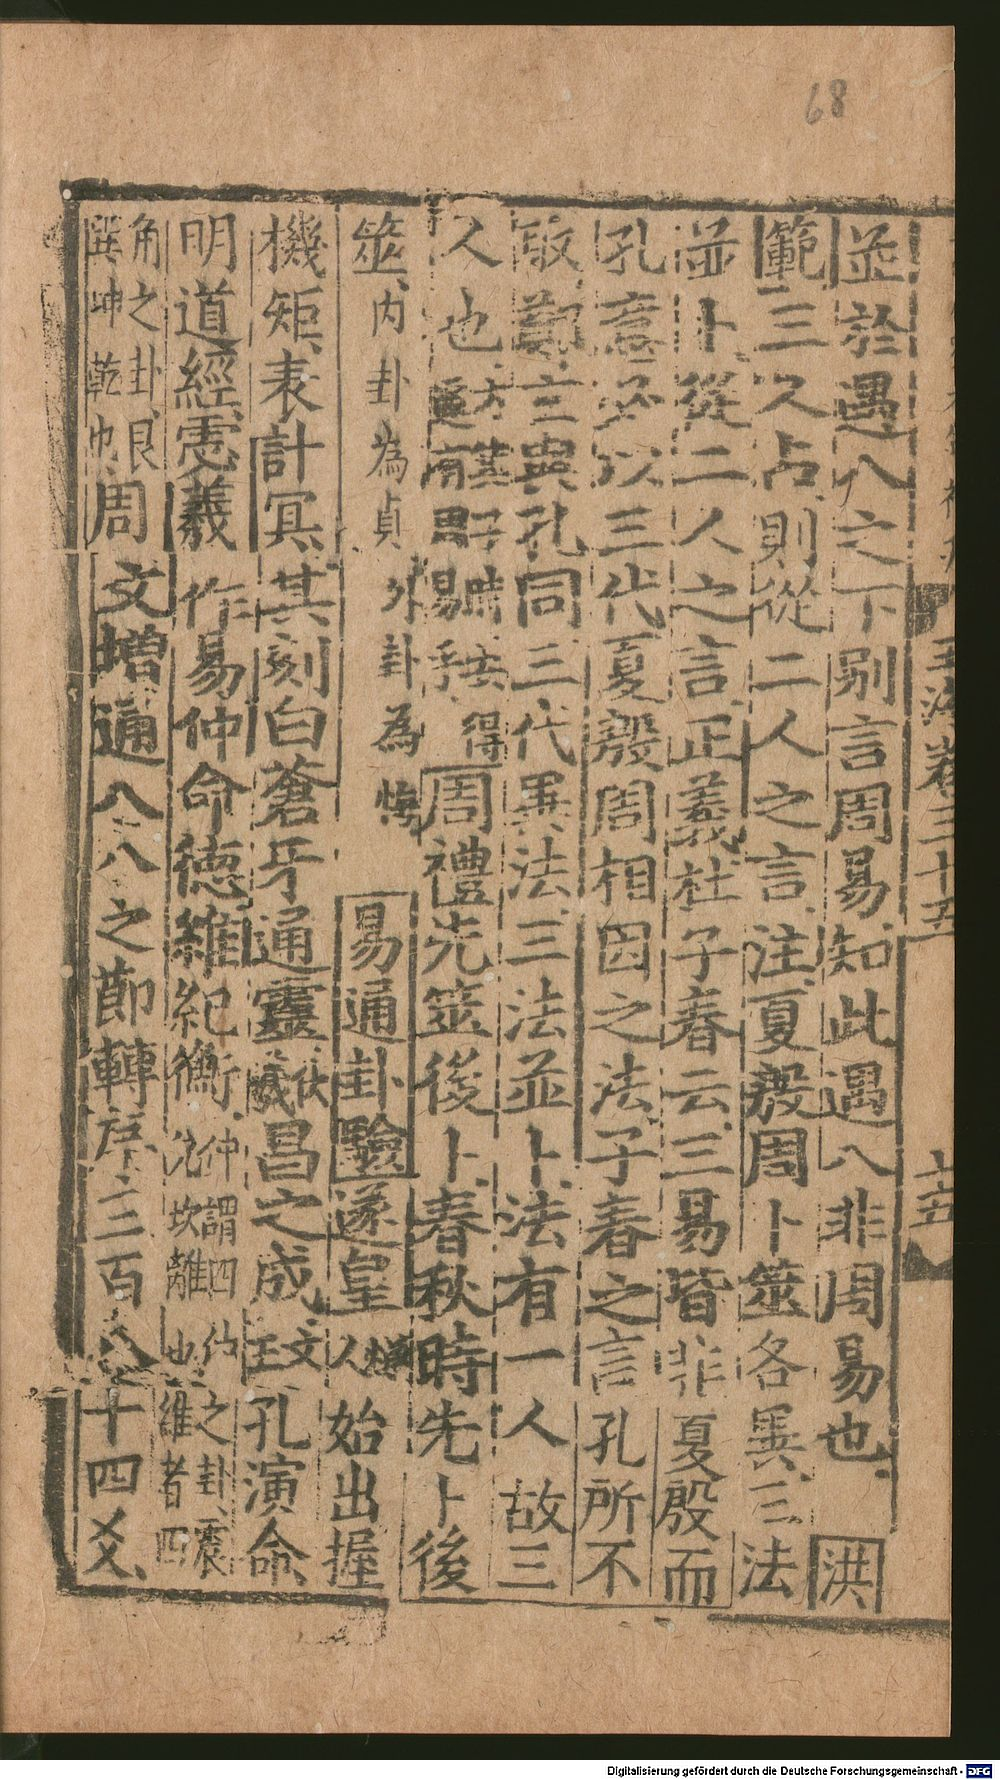 68
玉海卷三十五
十五
並於遇八之下别言周易知此遇八非周易也洪
範三人占則從二人之言注夏殷周卜筮各異三法
並卜從二人之言正義杜子春云三易皆非夏殷而
孔意必以三代夏殷周相因之法子春之言孔所不
取鄭玄與孔同三代異法三法並卜法有一人故三
人也
周禮先筮後卜春秋時先卜後
筮内卦為貞外卦為悔
易通卦驗遂皇
人
始出握
機矩表計冥其刻白蒼牙通靈
伏
羲
昌之成
文
王
孔演命
明道經
羲作易仲命德維紀衡
衡仲謂四仲之卦震
兌坎離也維者四
角之卦艮
巽坤乾也
周文增通八八之節轉序三百八十四爻
Digitalisierung gefördert durch die Deutsche Forschungsgemeinschaft - DFG